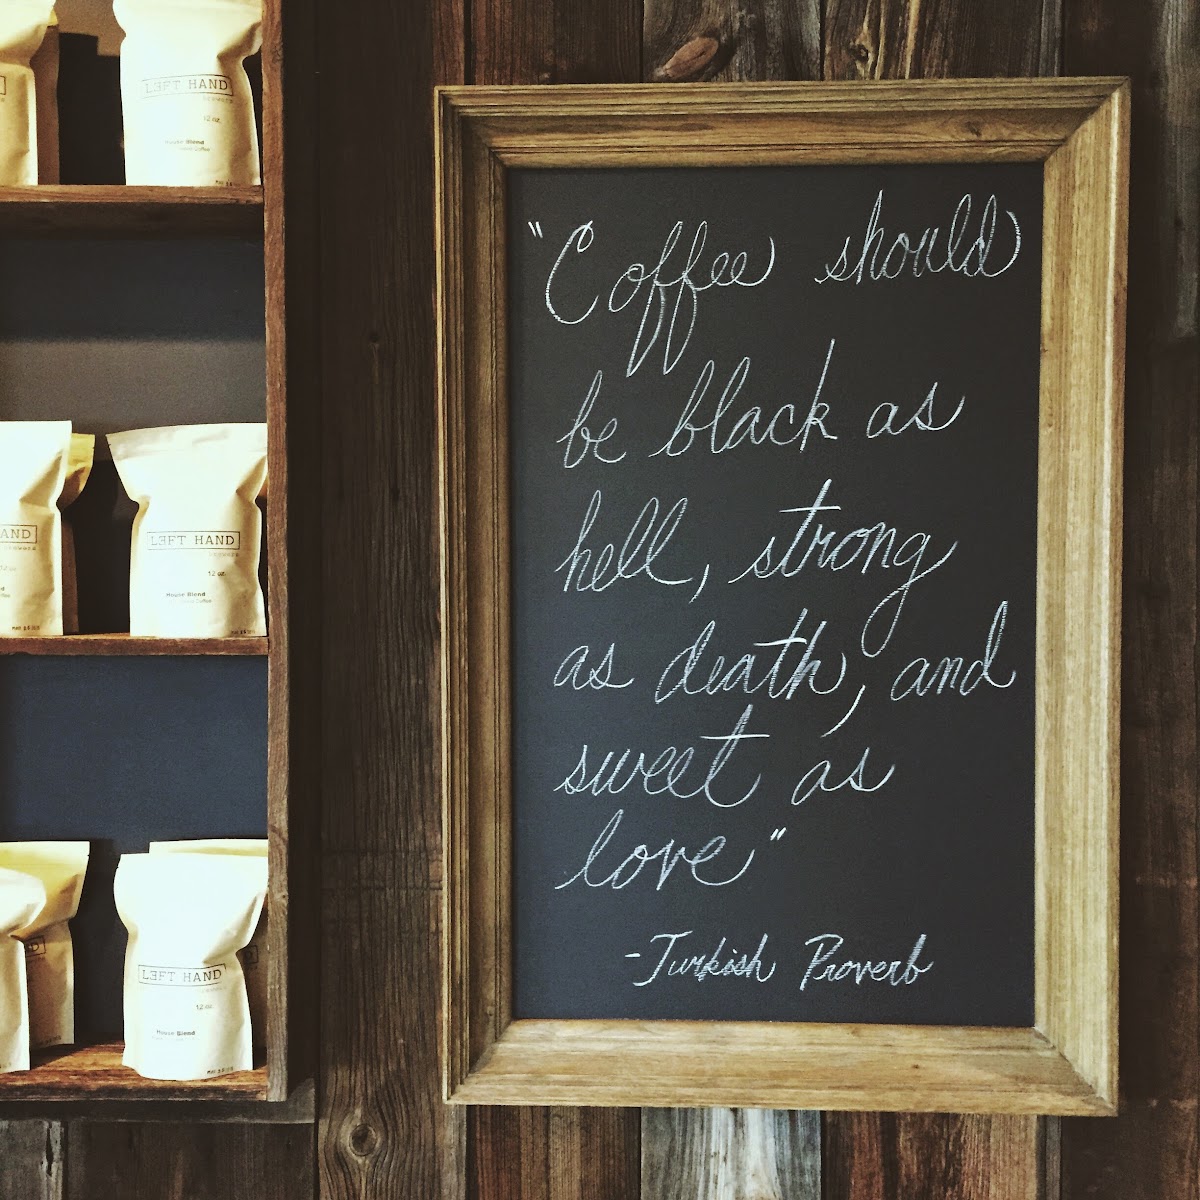 "Coffee should
be black as
hell, strong
as death, and
sweet as
love"
-Turkish Proverb
LƎFT HAND
12 oz.
House Blend
AND
LƎFT HAND
12 oz.
House Blend
LƎFT HAND
12 oz.
House Blend